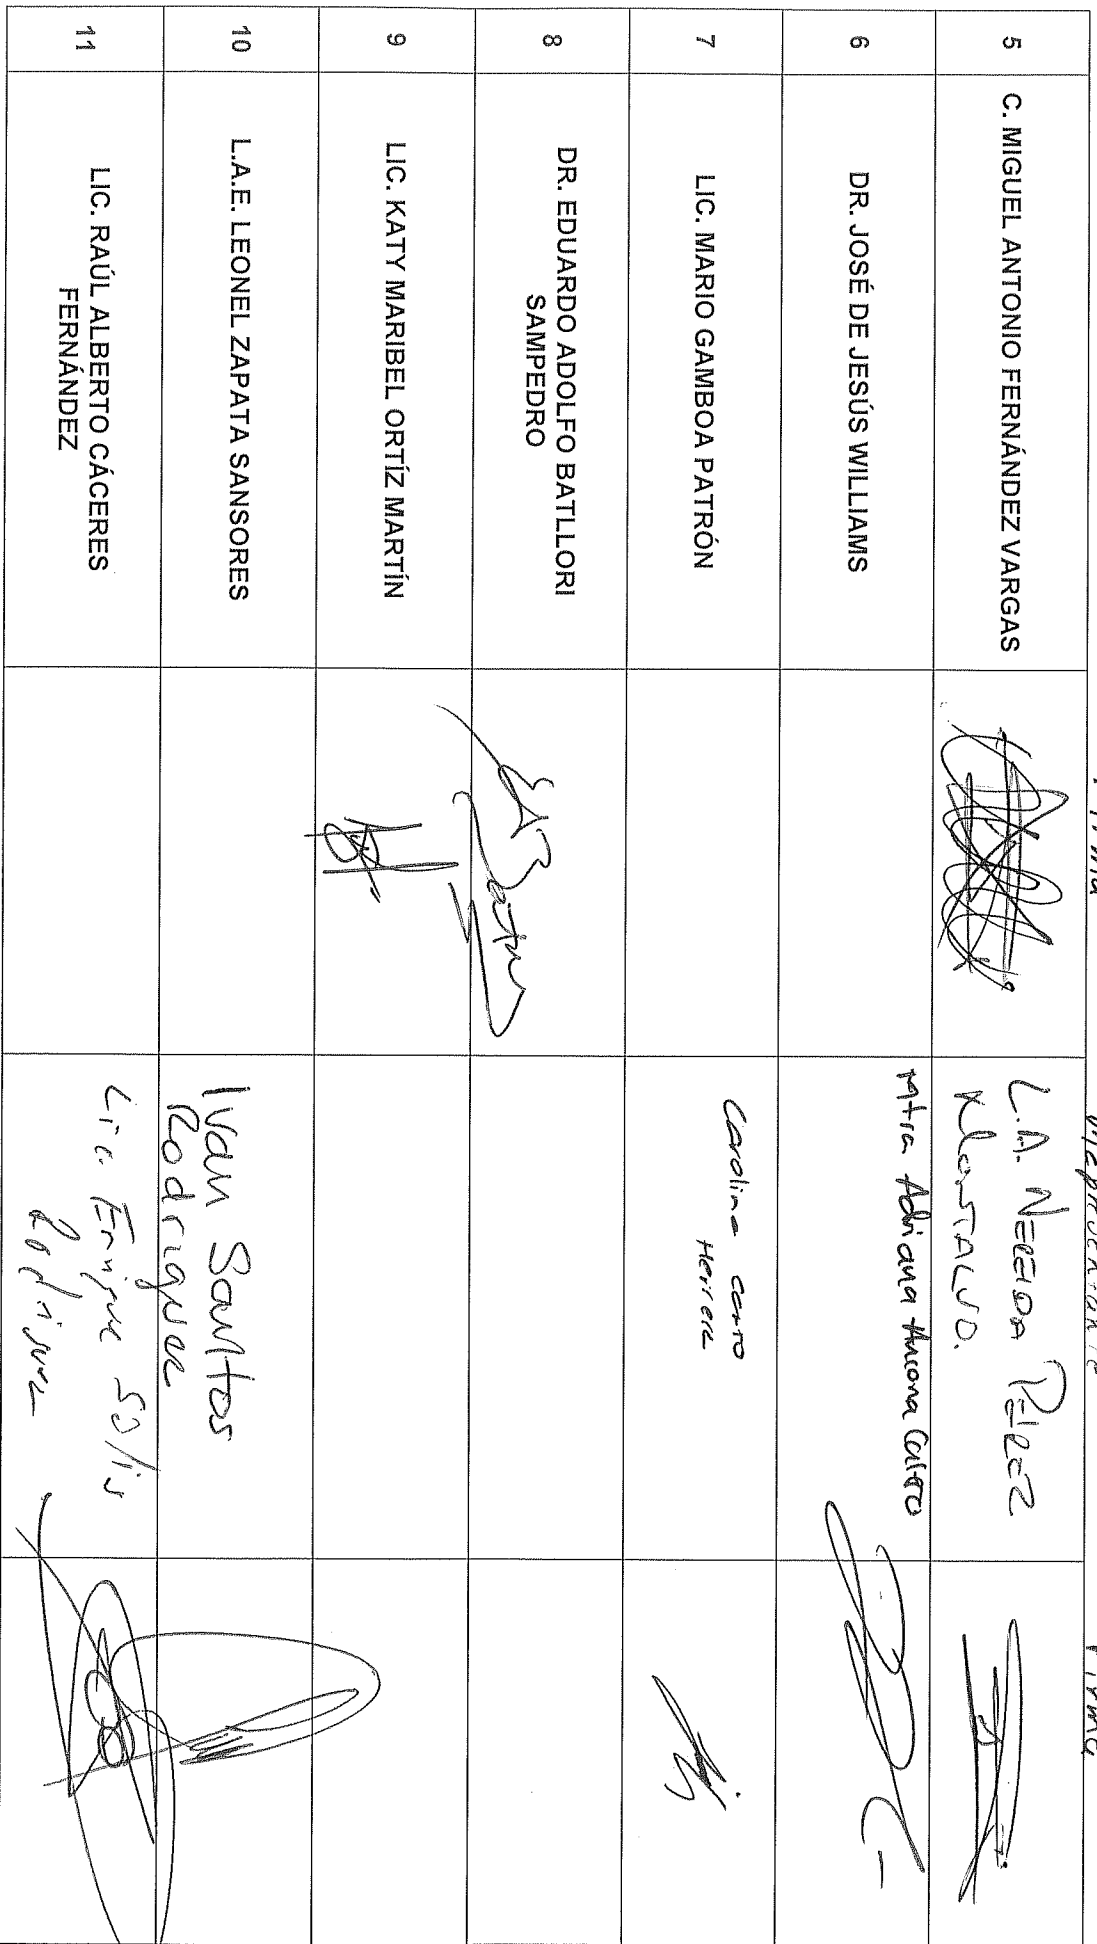 Firma
Representante
Firma
5
C. MIGUEL ANTONIO FERNÁNDEZ VARGAS
L.A. NEREIDA PÉREZ
6
DR. JOSÉ DE JESÚS WILLIAMS
Mtra Adriana Ancona Castro
7
LIC. MARIO GAMBOA PATRÓN
Carolina Canto
Herrera
8
DR. EDUARDO ADOLFO BATLLORI
SAMPEDRO
9
LIC. KATY MARIBEL ORTÍZ MARTÍN
10
L.A.E. LEONEL ZAPATA SANSORES
Ivan Santos
Rodriguez
11
LIC. RAÚL ALBERTO CÁCERES
FERNÁNDEZ
Lic. Enrique Solis
Rodriguez